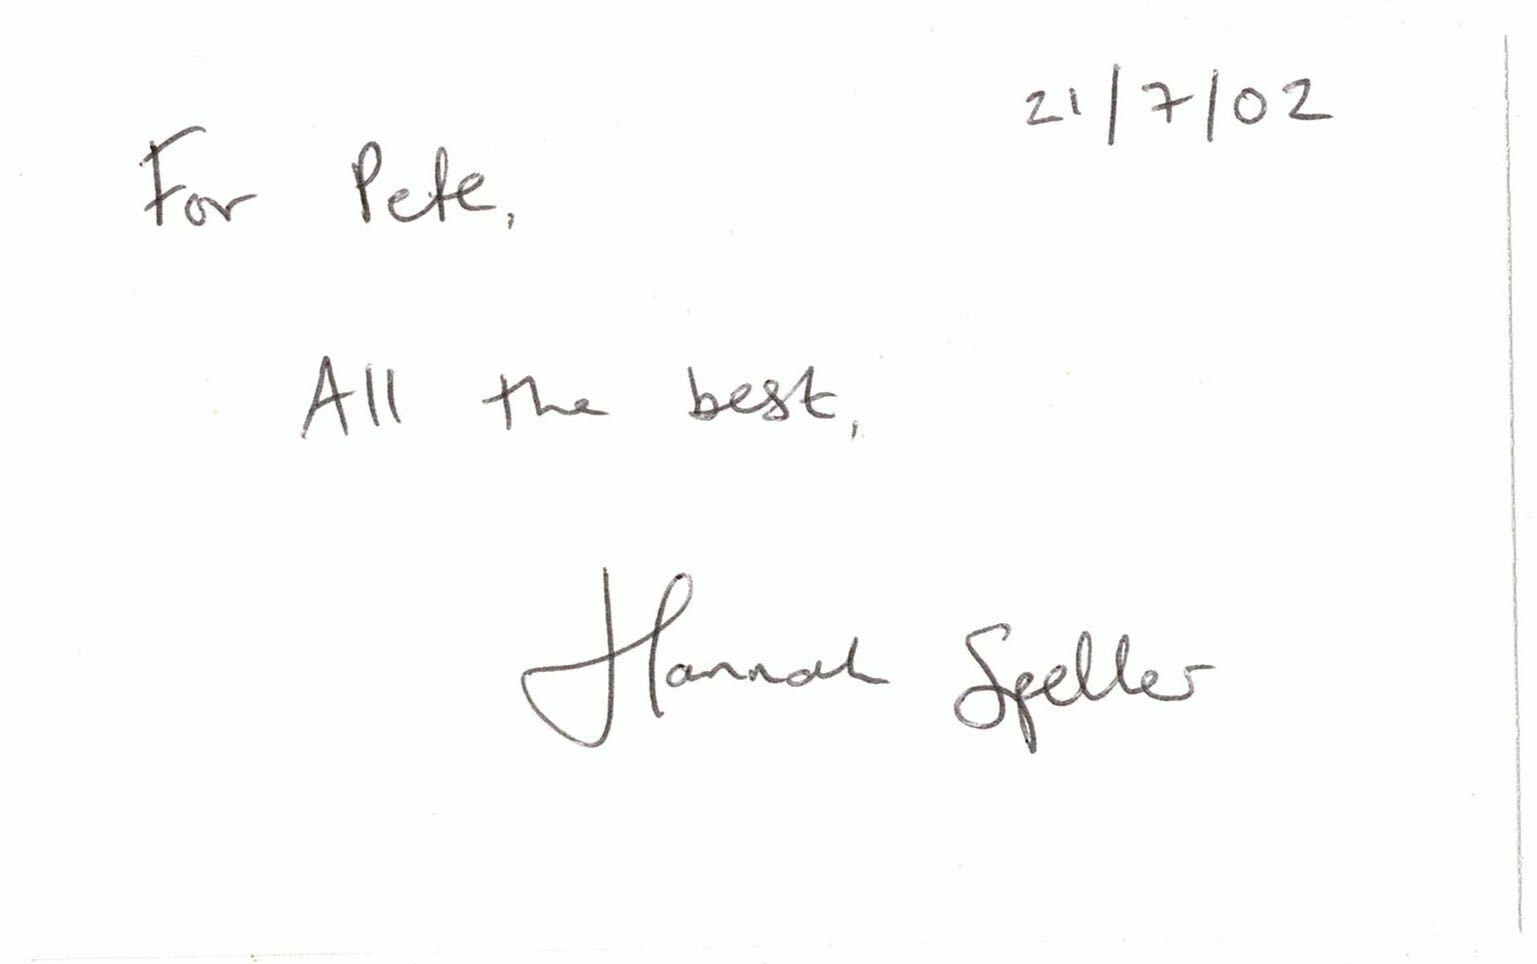 21/7/02
For Pete,
All the best,
Hannah Speller